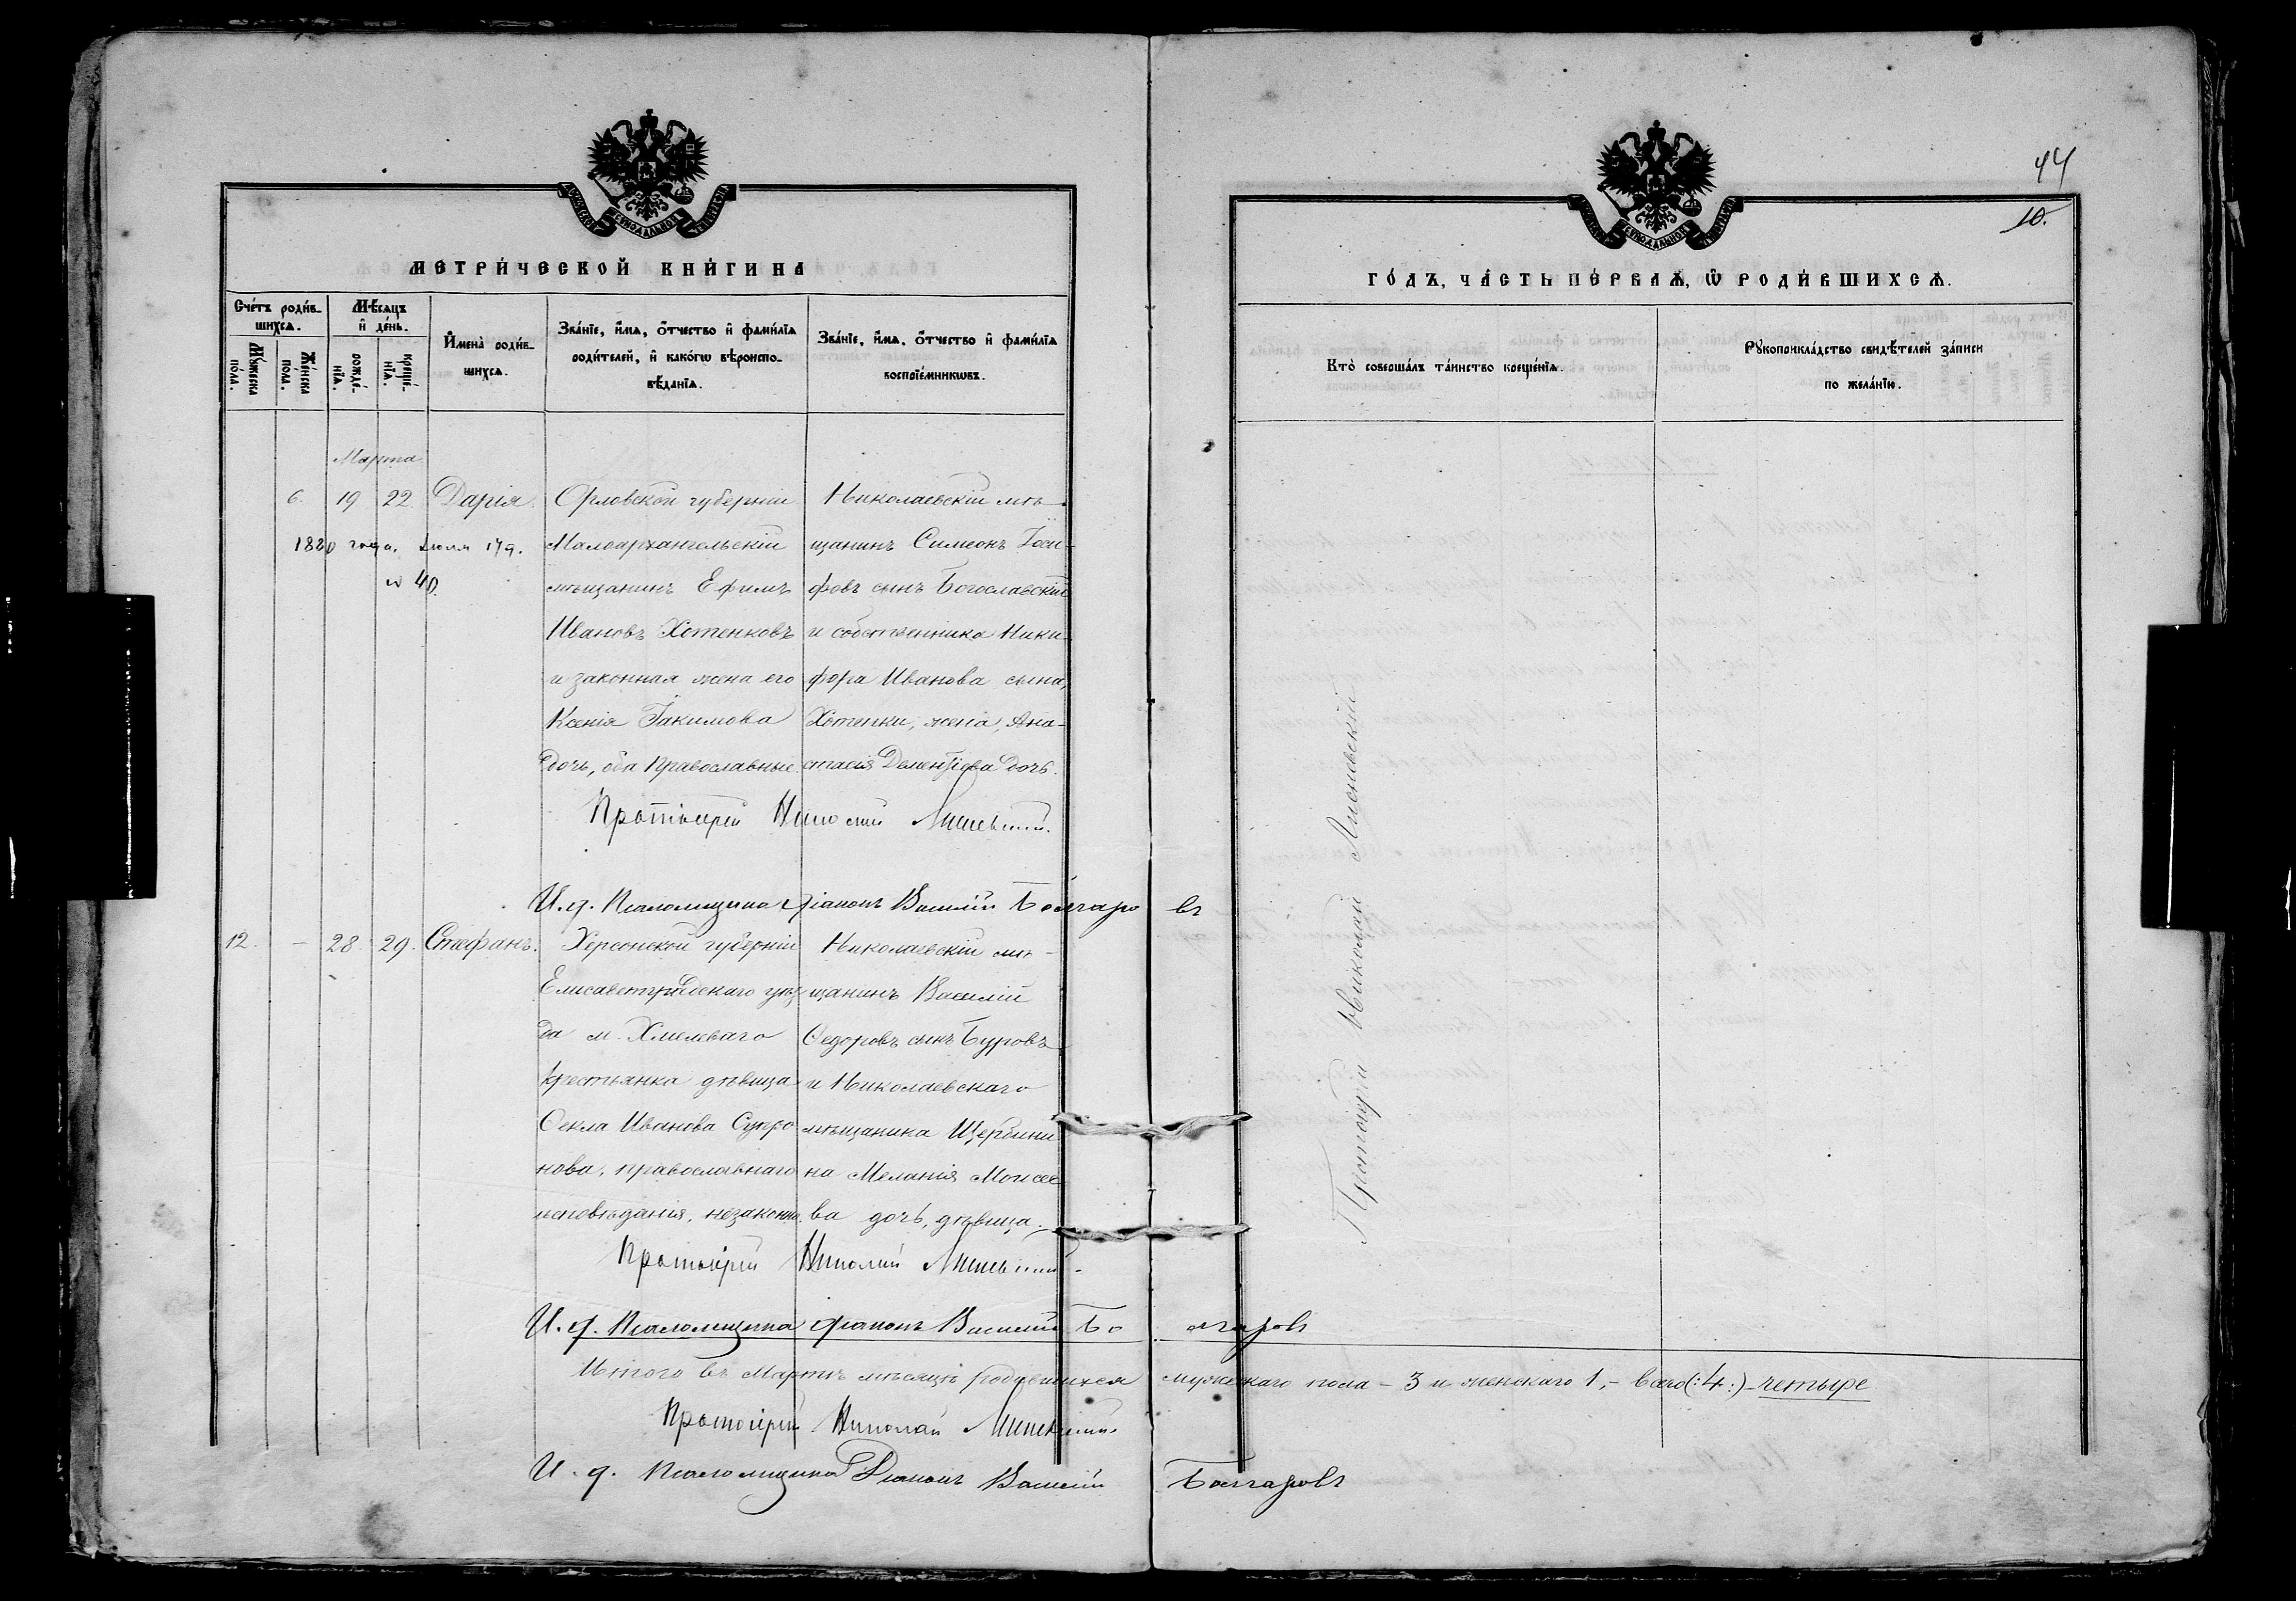 МЕТРИ́ЧЕСКОЙ КНИ́ГИ НА
Сче́тъ роди́в-
шихся.
Мѣ́сяцъ
и҆ де́нь.
Мꙋ́жеска
по́ла.
Же́нска
по́ла.
рожде́-
нїя.
креще́-
нїя.
И҆мена̀ роди́в-
шихся.
Зва́нїе, и҆́мя, ѻ҆́тчество и҆ фами́лїя
роди́телей, и҆ како́гѡ вѣроиспо-
вѣ́данїя.
Зва́нїе, и҆́мя, ѻ҆́тчество и҆ фами́лїя
воспрїе́мникѡвъ.
Марта
6. 19 22. Дарія.
1880 года. Июля 17 д.
№ 40.
Орловской губерніи
Малоархангельскій
мѣщанинъ Ефимъ
Ивановъ Хотенковъ
и законная жена его
Ксенія Іакимова
дочь, оба православные.
Николаевскій мѣ-
щанинъ Симеонъ Іоси-
фовъ сынъ Богославскій
и собственника Ники-
фора Иванова сына,
Хотенки, жена, Ана-
стасія Дементіева дочь.
Протоіерей Николай
И. д. Псаломщика Діаконъ Василій Болгаровъ
12. – 28. 29. Стефанъ.
Херсонской губерніи
Елисаветградскаго уѣз-
да м. Хмелеваго
крестьянка дѣвица
Ѳекла Иванова Супро
нова, православнаго
исповѣданія, незаконно.
Николаевскій мѣ-
щанинъ Василій
Ѳедоровъ сынъ Буровъ
и Николаевскаго
мѣщанина Щербини
на Меланія Моисее
ва дочь, дѣвица.
Протоіерей Николай
И. д. Псаломщика Діаконъ Василій Болгаровъ
Итого въ Мартѣ мѣсяцѣ родившихся мужескаго пола – 3 и женскаго 1, – всего (:4:) – четыре
Протоіерей Николай
И. д. Псаломщика Діаконъ Василій Болгаровъ
44
10.
ГО́ДЪ, ЧА́СТЬ ПЕ́РВАЯ, Ѡ҆ РОДИ́ВШИХСЯ.
Кто̀ соверша́лъ та́инство креще́нїя.
Рꙋкоприкла́дство свидѣ́телей за́писи
по жела́нїю.
Протоіерей Николай